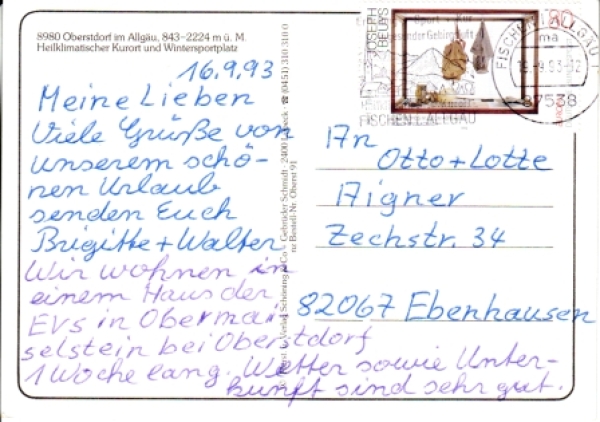 8980 Oberstdorf im Allgäu, 843–2224 m ü. M.
Heilklimatischer Kurort und Wintersportplatz
16.9.93
Meine Lieben
Viele Grüße von
unserem schö-
nen Urlaub
senden Euch
Brigitte + Walter
Wir wohnen in
einem Haus der
EVS in Obermai
selstein bei Oberstdorf
1 Woche lang. Wetter sowie Unter-
kunft sind sehr gut.
Gebrüder Schmidt · 2400 Lübeck · ☎ (0451) 310 310 0
Bestell-Nr. Oberst 91
JOSEPH
BEUYS
Sport
Kur
FISCHEN I. ALLGÄU
FISCHEN I. ALLGÄU
9.93-12
87538
An
Otto + Lotte
Aigner
Zechstr. 34
82067 Ebenhausen